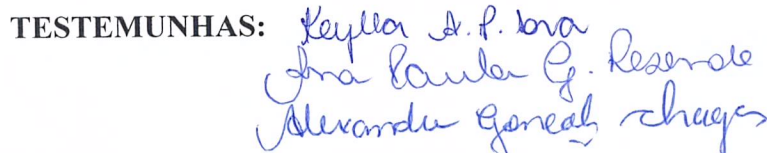 TESTEMUNHAS: Keylla A. P.
Ana Paula G. Resende
Alexandre Gonçalves Chagas